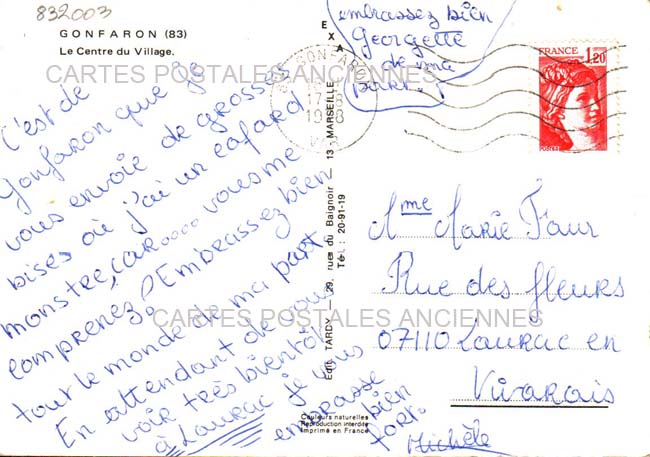 832003
GONFARON (83)
Le Centre du Village.
EXA
embrassez bien
Georgette
de ma
part.
GONFARON
17-8
1978
VAR
FRANCE
1,20
POSTES
CARTES POSTALES ANCIENNES
C'est de
Gonfaron que je
vous envoie de grosses
bises où j'ai un cafard
monstre, car.... vous me
comprenez! Embrassez bien
tout le monde de ma part
En attendant de vous
voir très bientôt
à Laurac je vous
embrasse
bien
fort.
Michèle
Edit. TARDY — 29, rues du Baignoir — 13 - MARSEILLE
Tél. : 20-91-19
Mme Marie Faur
Rue des fleurs
07110 Laurac en
Vivarais
CARTES POSTALES ANCIENNES
Couleurs naturelles
Reproduction interdite
Imprimé en France